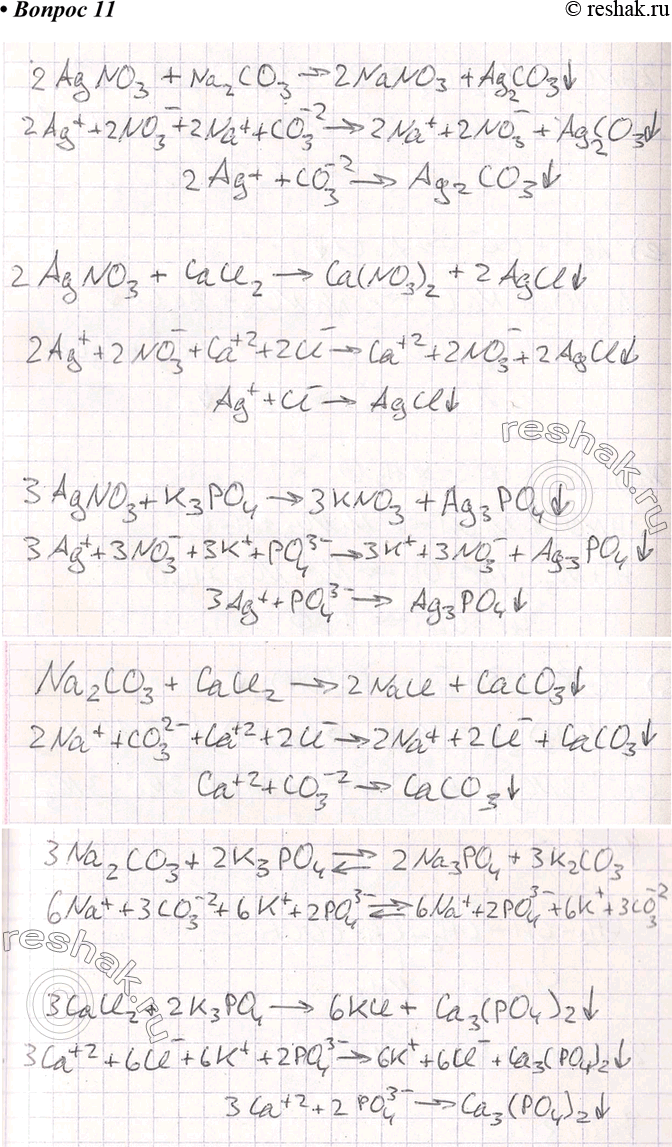 • Вопрос 11
© reshak.ru
2AgNO₃ + Na₂CO₃ → 2NaNO₃ + Ag₂CO₃↓
2Ag⁺ + 2NO₃⁻ + 2Na⁺ + CO₃⁻² → 2Na⁺ + 2NO₃⁻ + Ag₂CO₃↓
2Ag⁺ + CO₃⁻² → Ag₂CO₃↓
2AgNO₃ + CaCl₂ → Ca(NO₃)₂ + 2AgCl↓
2Ag⁺ + 2NO₃⁻ + Ca⁺² + 2Cl⁻ → Ca⁺² + 2NO₃⁻ + 2AgCl↓
Ag⁺ + Cl⁻ → AgCl↓
reshak.ru
3AgNO₃ + K₃PO₄ → 3KNO₃ + Ag₃PO₄↓
3Ag⁺ + 3NO₃⁻ + 3K⁺ + PO₄³⁻ → 3K⁺ + 3NO₃⁻ + Ag₃PO₄↓
3Ag⁺ + PO₄³⁻ → Ag₃PO₄↓
Na₂CO₃ + CaCl₂ → 2NaCl + CaCO₃↓
2Na⁺ + CO₃²⁻ + Ca⁺² + 2Cl⁻ → 2Na⁺ + 2Cl⁻ + CaCO₃↓
Ca⁺² + CO₃⁻² → CaCO₃↓
3Na₂CO₃ + 2K₃PO₄ ⇄ 2Na₃PO₄ + 3K₂CO₃
6Na⁺ + 3CO₃⁻² + 6K⁺ + 2PO₄³⁻ ⇄ 6Na⁺ + 2PO₄³⁻ + 6K⁺ + 3CO₃⁻²
reshak.ru
3CaCl₂ + 2K₃PO₄ → 6KCl + Ca₃(PO₄)₂↓
3Ca⁺² + 6Cl⁻ + 6K⁺ + 2PO₄³⁻ → 6K⁺ + 6Cl⁻ + Ca₃(PO₄)₂↓
3Ca⁺² + 2PO₄³⁻ → Ca₃(PO₄)₂↓